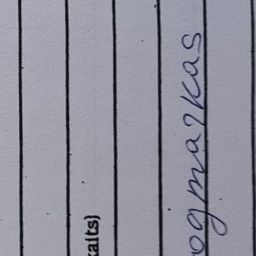 kaits)
ogmarkas